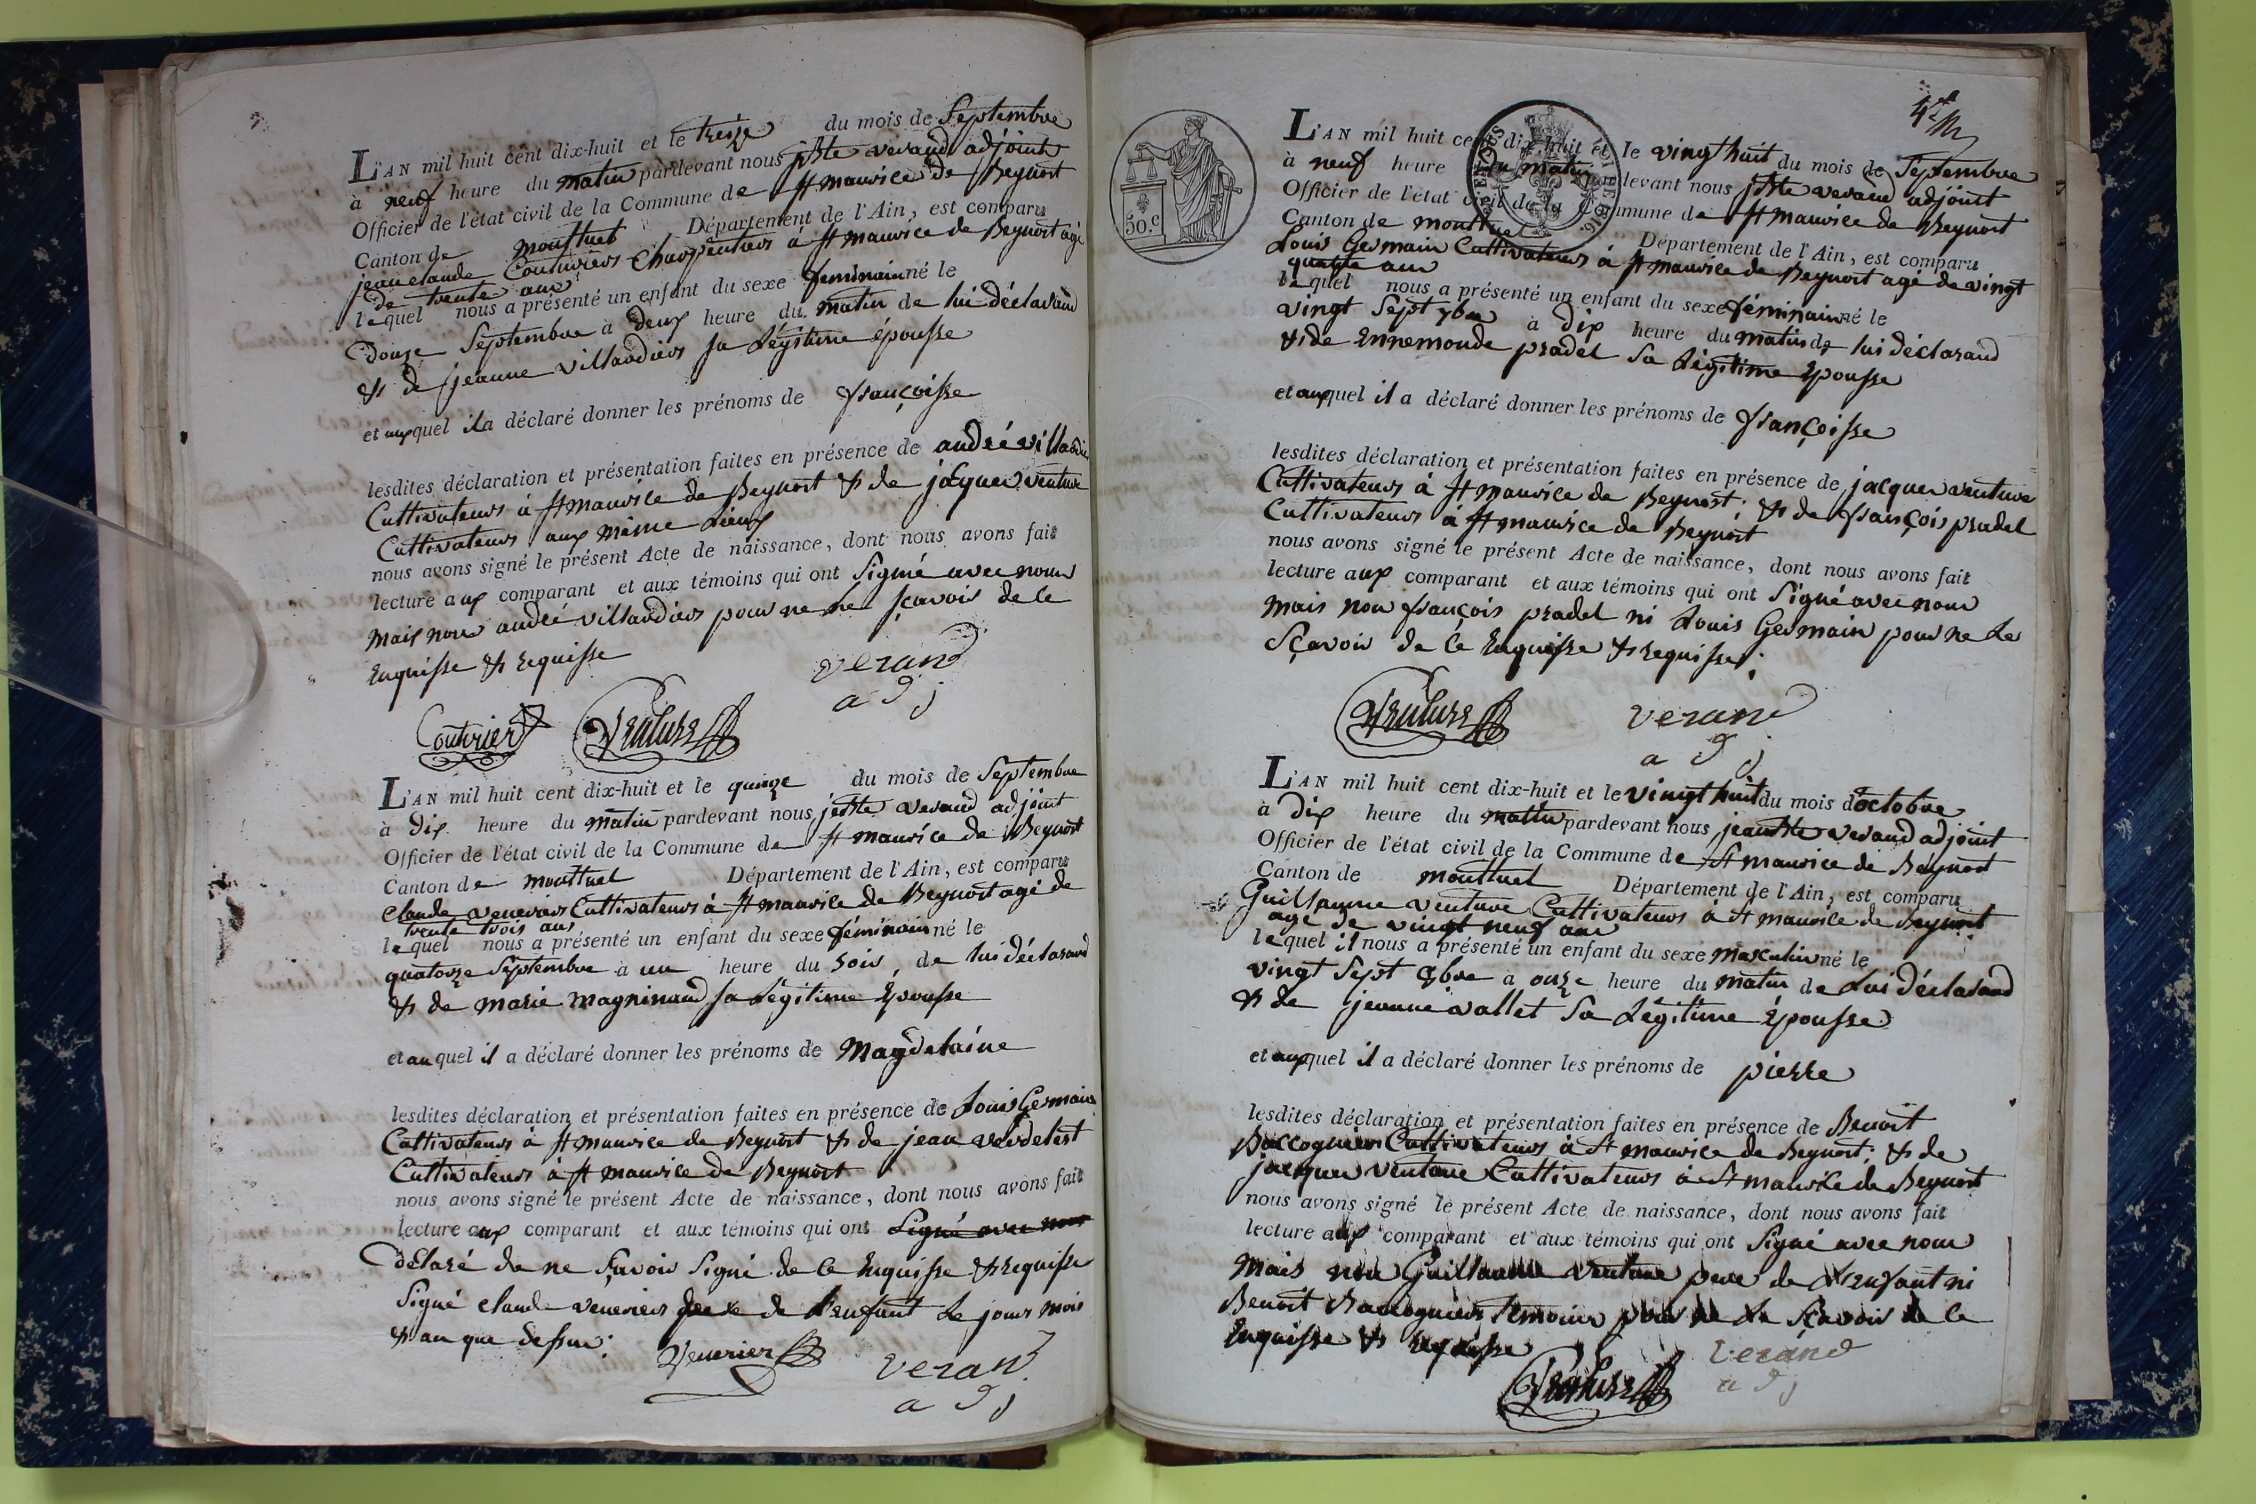 L'AN mil huit cent dix-huit et le treize du mois de Septembre
à neuf heure du matin pardevant nous jbte verand adjoint
Officier de l'état civil de la Commune de St maurice de Beynost
Canton de montluel Département de l'Ain, est comparu
jean claude Couturier Charpentier à St maurice de Beynost agé
de trente ans
lequel nous a présenté un enfant du sexe feminain né le
douze Septembre à deux heure du matin de lui déclarand
& de jeanne villardier sa Légitime épousse
et auxquel il a déclaré donner les prénoms de françoisse
lesdites déclaration et présentation faites en présence de andré villardier
Cultivateur à St maurice de Beynost & de jacque venture
Cultivateur aux même Lieux
nous avons signé le présent Acte de naissance, dont nous avons fait
lecture aux comparant et aux témoins qui ont Signé avec nous
mais non andré villardier pour ne le sçavoir de ce
Enquisse & requisse
verand
adj
Couturier Venture
L'AN mil huit cent dix-huit et le quinze du mois de Septembre
à dix heure du matin pardevant nous jbte verand adjoint
Officier de l'état civil de la Commune de St maurice de Beynost
Canton de montluel Département de l'Ain, est comparu
claude venerier Cultivateur à St maurice de Beynost agé de
trente trois ans
lequel nous a présenté un enfant du sexe féminain né le
quatorze Septembre à un heure du soir de lui déclarand
& de marie magninand sa Légitime Epousse
et auquel il a déclaré donner les prénoms de Magdelaine
lesdites déclaration et présentation faites en présence de Louis Germain
Cultivateur à St maurice de Beynost & de jean verdelest
Cultivateur à St maurice de Beynost
nous avons signé le présent Acte de naissance, dont nous avons fait
lecture aux comparant et aux témoins qui ont Signé avec nous
déclaré de ne sçavoir Signé de ce Enquisse & requisse
Signé claude venerier pere de l'enfant Le jour mois
& an que dessus.
Venerier verand
adj
4e
L'AN mil huit cent dix-huit et le vingt huit du mois de Septembre
à neuf heure du matin pardevant nous jbte verand adjoint
Officier de l'état civil de la Commune de St maurice de Beynost
Canton de montluel Département de l'Ain, est comparu
Louis Germain Cultivateur à St maurice de Beynost agé de vingt
quatre ans
lequel nous a présenté un enfant du sexe féminain né le
vingt Sept 7bre à dix heure du matin de lui déclarand
& de Ennemonde pradel Sa Légitime Epousse
et auxquel il a déclaré donner les prénoms de françoisse
lesdites déclaration et présentation faites en présence de jacque venture
Cultivateur à St maurice de Beynost; & de françois pradel
Cultivateur à St maurice de Beynost
nous avons signé le présent Acte de naissance, dont nous avons fait
lecture aux comparant et aux témoins qui ont Signé avec nous
mais non françois pradel ni Louis Germain pour ne Le
Sçavoir de ce Enquisse & requisse.
Venture verand
adj
50.c
L'AN mil huit cent dix-huit et le vingt huit du mois d'octobre
à dix heure du matin pardevant nous jean bte verand adjoint
Officier de l'état civil de la Commune de St maurice de Beynost
Canton de montluel Département de l'Ain, est comparu
Guillaume venture Cultivateur à St maurice de Beynost
agé de vingt neuf ans
lequel il nous a présenté un enfant du sexe masculin né le
vingt Sept 8bre à onze heure du matin de Lui déclarand
& de jeanne vallet Sa Légitime Epousse
et auxquel il a déclaré donner les prénoms de pierre
lesdites déclaration et présentation faites en présence de Benoit
Cultivateur à St maurice de Beynost & de
jacque venture Cultivateur à St maurice de Beynost
nous avons signé le présent Acte de naissance, dont nous avons fait
lecture aux comparant et aux témoins qui ont Signé avec nous
mais non Guillaume venture pere de L'enfant ni
Benoit témoin pour ne Le sçavoir de ce
Enquisse & requisse
Venture verand
adj